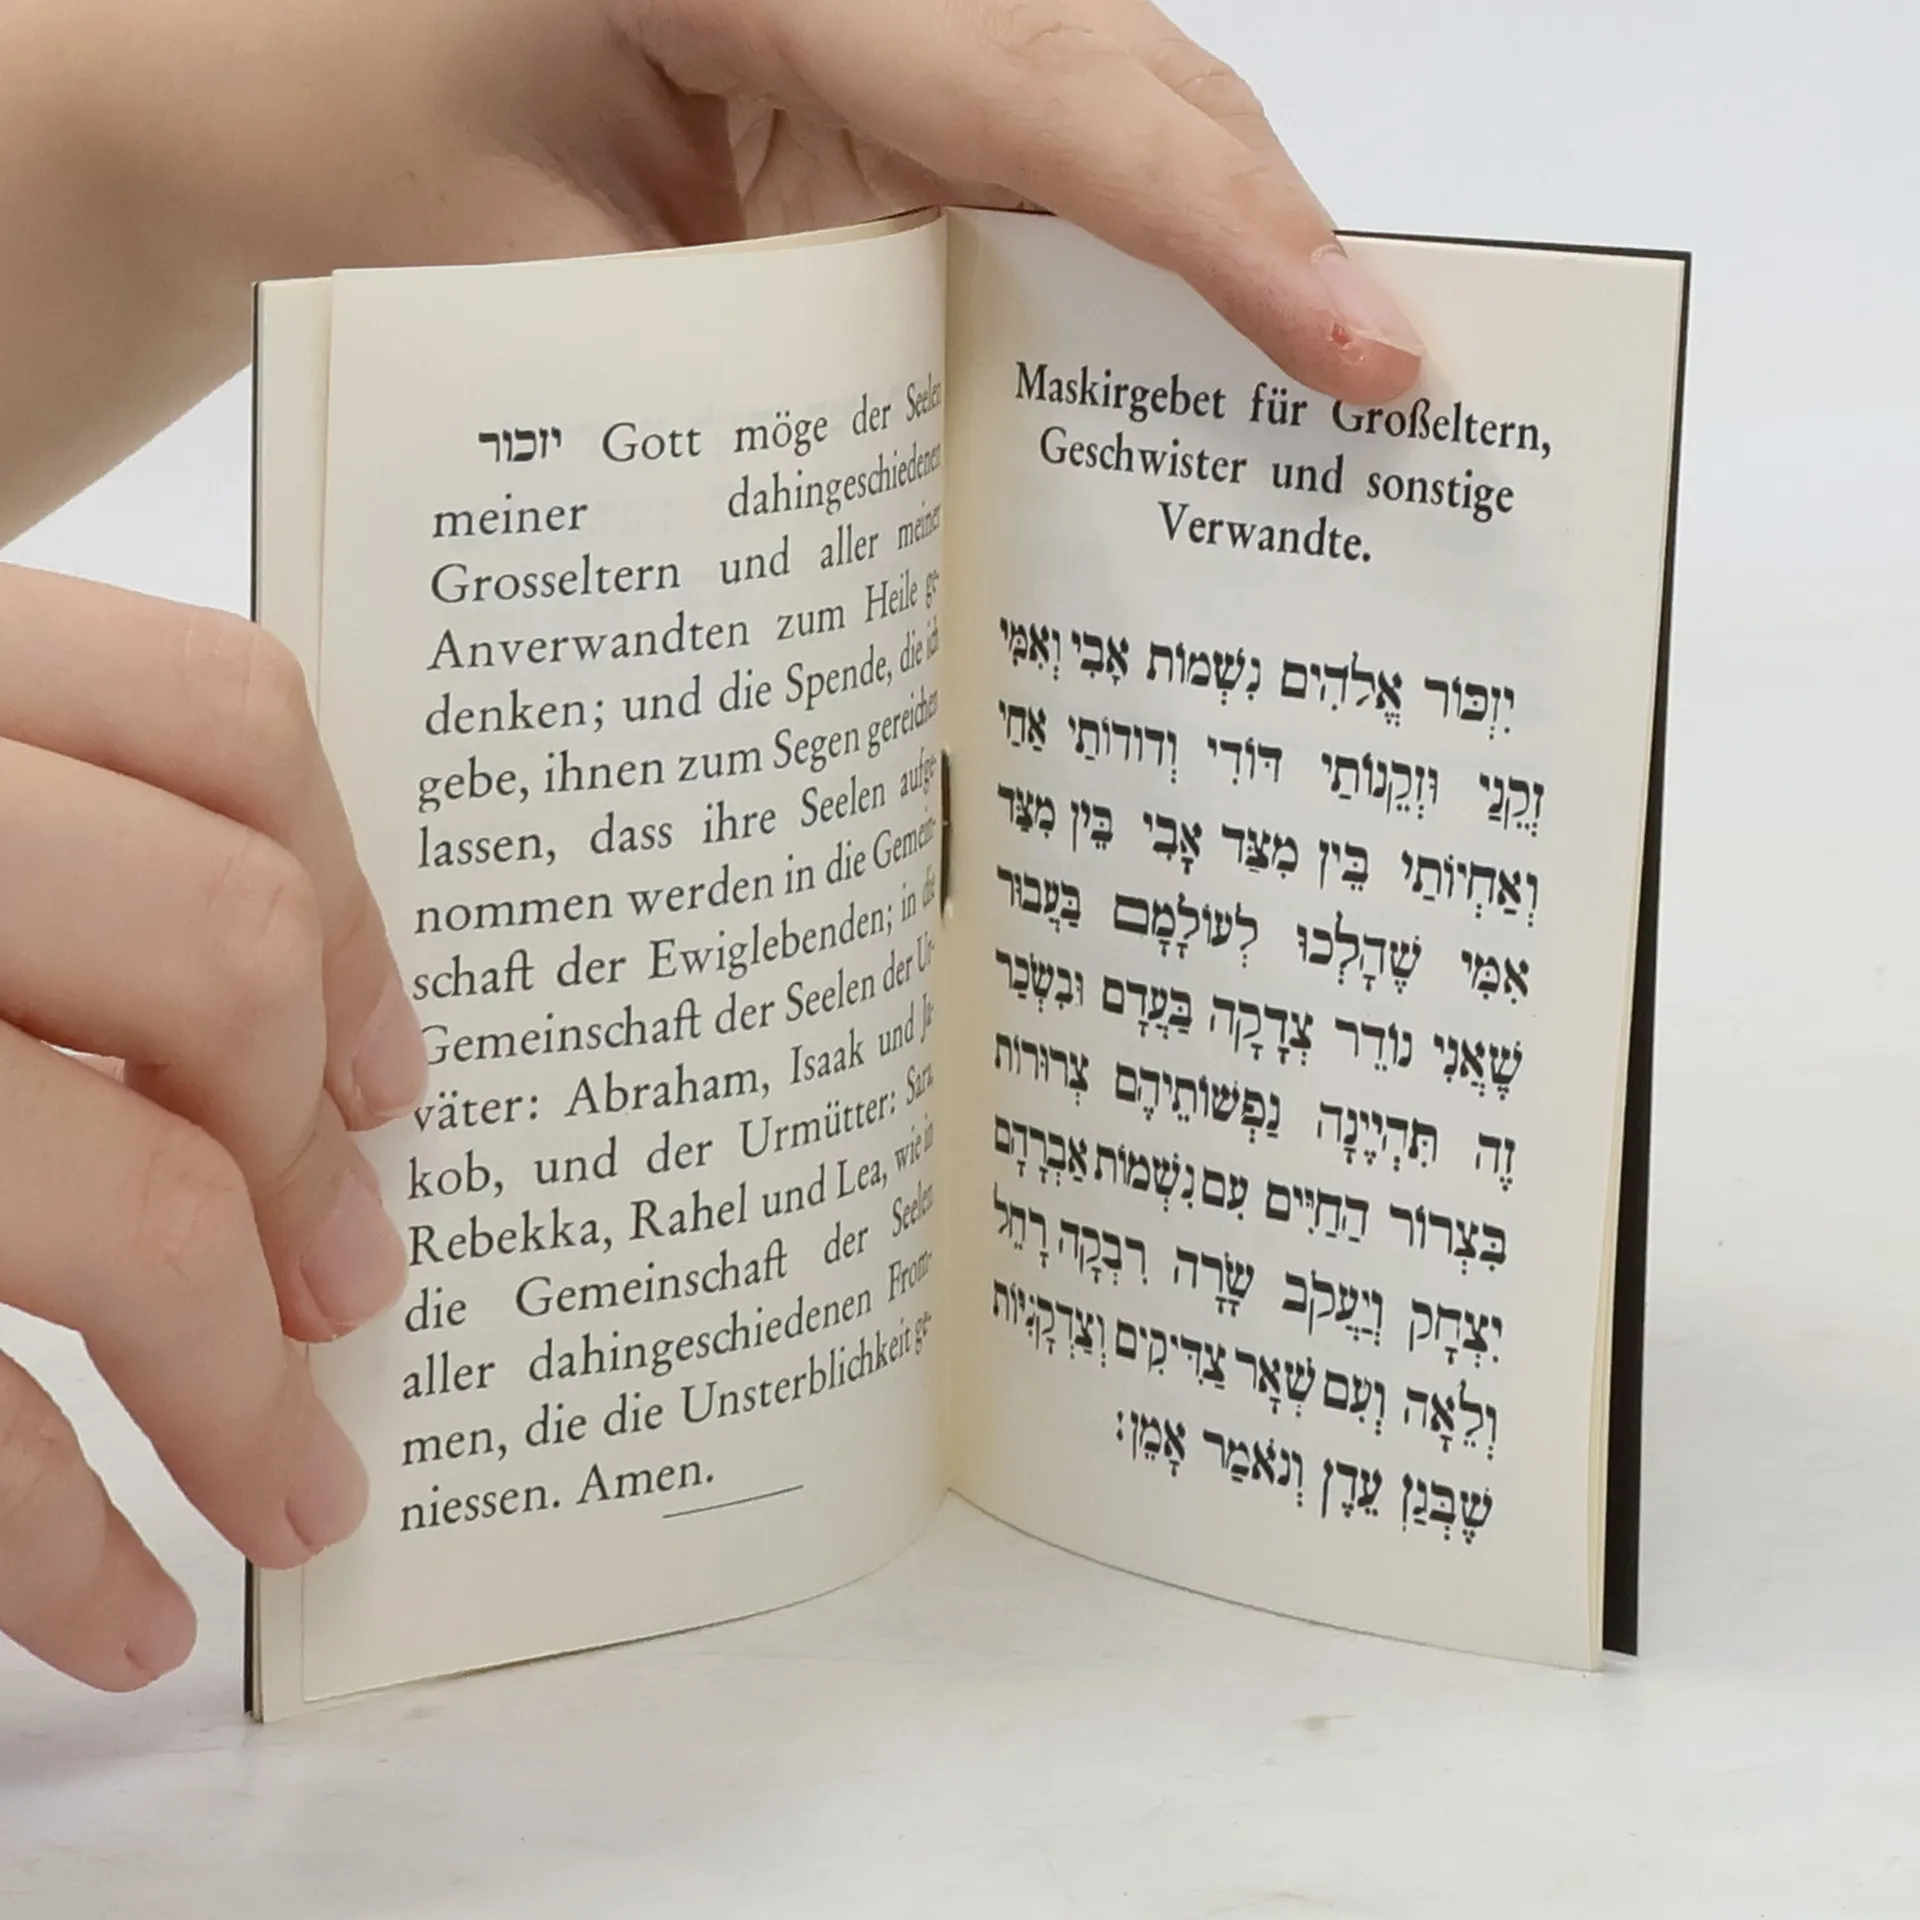 יזכור Gott möge der Seelen
meiner dahingeschiedenen
Grosseltern und aller meiner
Anverwandten zum Heile ge-
denken; und die Spende, die ich
gebe, ihnen zum Segen gereichen
lassen, dass ihre Seelen aufge-
nommen werden in die Gemein-
schaft der Ewiglebenden; in die
Gemeinschaft der Seelen der Ur-
väter: Abraham, Isaak und Ja-
kob, und der Urmütter: Sara,
Rebekka, Rahel und Lea, wie in
die Gemeinschaft der Seelen
aller dahingeschiedenen From-
men, die die Unsterblichkeit ge-
niessen. Amen.
Maskirgebet für Großeltern,
Geschwister und sonstige
Verwandte.
יִזְכּוֹר אֱלֹהִים נִשְׁמוֹת אָבִי וְאִמִּי
זְקֵנַי וּזְקֵנוֹתַי דּוֹדִי וְדוֹדוֹתַי אַחַי
וְאַחְיוֹתַי בֵּין מִצַּד אָבִי בֵּין מִצַּד
אִמִּי שֶׁהָלְכוּ לְעוֹלָמָם בַּעֲבוּר
שֶׁאֲנִי נוֹדֵר צְדָקָה בַּעֲדָם וּבִשְׂכַר
זֶה תִּהְיֶינָה נַפְשׁוֹתֵיהֶם צְרוּרוֹת
בִּצְרוֹר הַחַיִּים עִם נִשְׁמוֹת אַבְרָהָם
יִצְחָק וְיַעֲקֹב שָׂרָה רִבְקָה רָחֵל
וְלֵאָה וְעִם שְׁאָר צַדִּיקִים וְצַדְקָנִיּוֹת
שֶׁבְּגַן עֵדֶן וְנֹאמַר אָמֵן: